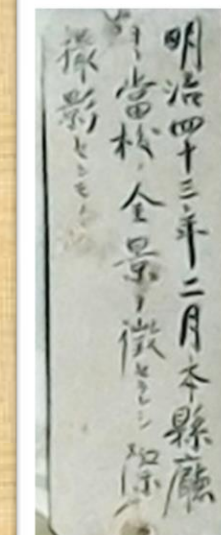 明治四十三年二月本縣廳
ヨリ當校ノ全景ヲ徴セラレシ際
撮影セシモノ